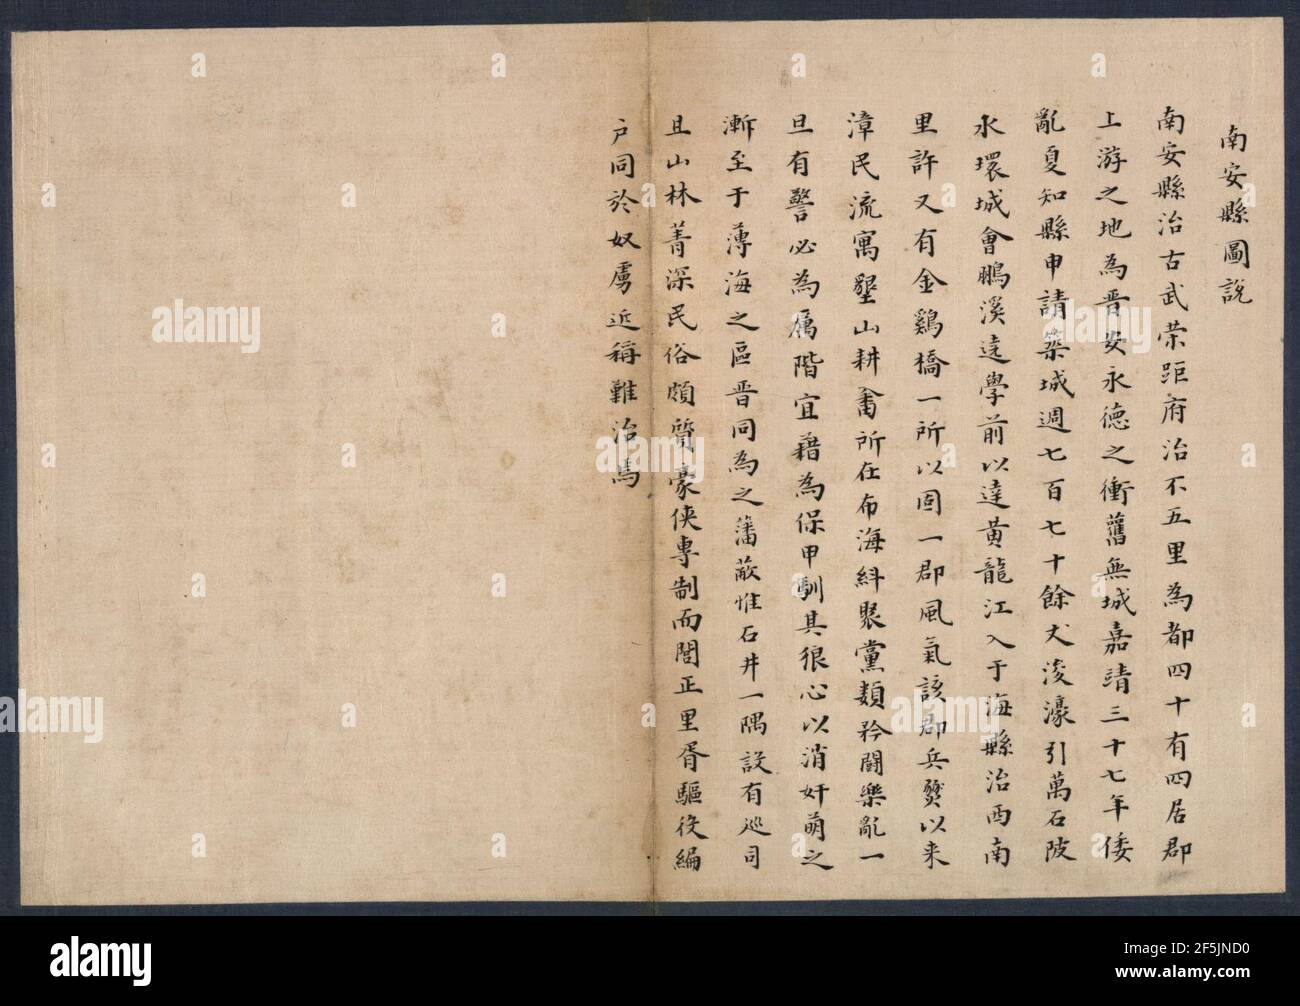 南安縣圖說
南安縣治古武荣距府治不五里為都四十有四居郡
上游之地為晋安永德之衝舊無城嘉靖三十七年倭
亂夏知縣申請築城週七百七十餘丈浚濠引萬石陂
水環城會鵬溪遶學前以達黄龍江入于海縣治西南
里許又有金鷄橋一所以固一郡風氣該郡兵燹以来
漳民流寓墾山耕畬所在布海紏聚黨類矜鬪樂亂一
旦有警必為厲階宜藉為保甲馴其狼心以消奸萌之
漸至于薄海之區晋同為之藩蔽惟石井一隅設有巡司
且山林菁深民俗頗質豪俠專制而閭正里胥驅役編
户同於奴虜近稱難治焉
alamy
Image ID: 2F5JND0
www.alamy.com